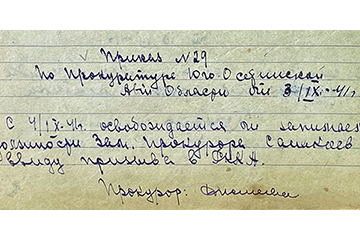 Приказ N 29
По Прокуратуре Юго-Осетинской
Авт. Области от 3/IX-41г.
С 4/IX-41г. освобождается от занимаемой
должности Зам. Прокурора
ввиду призыва в РККА.
Прокурор: